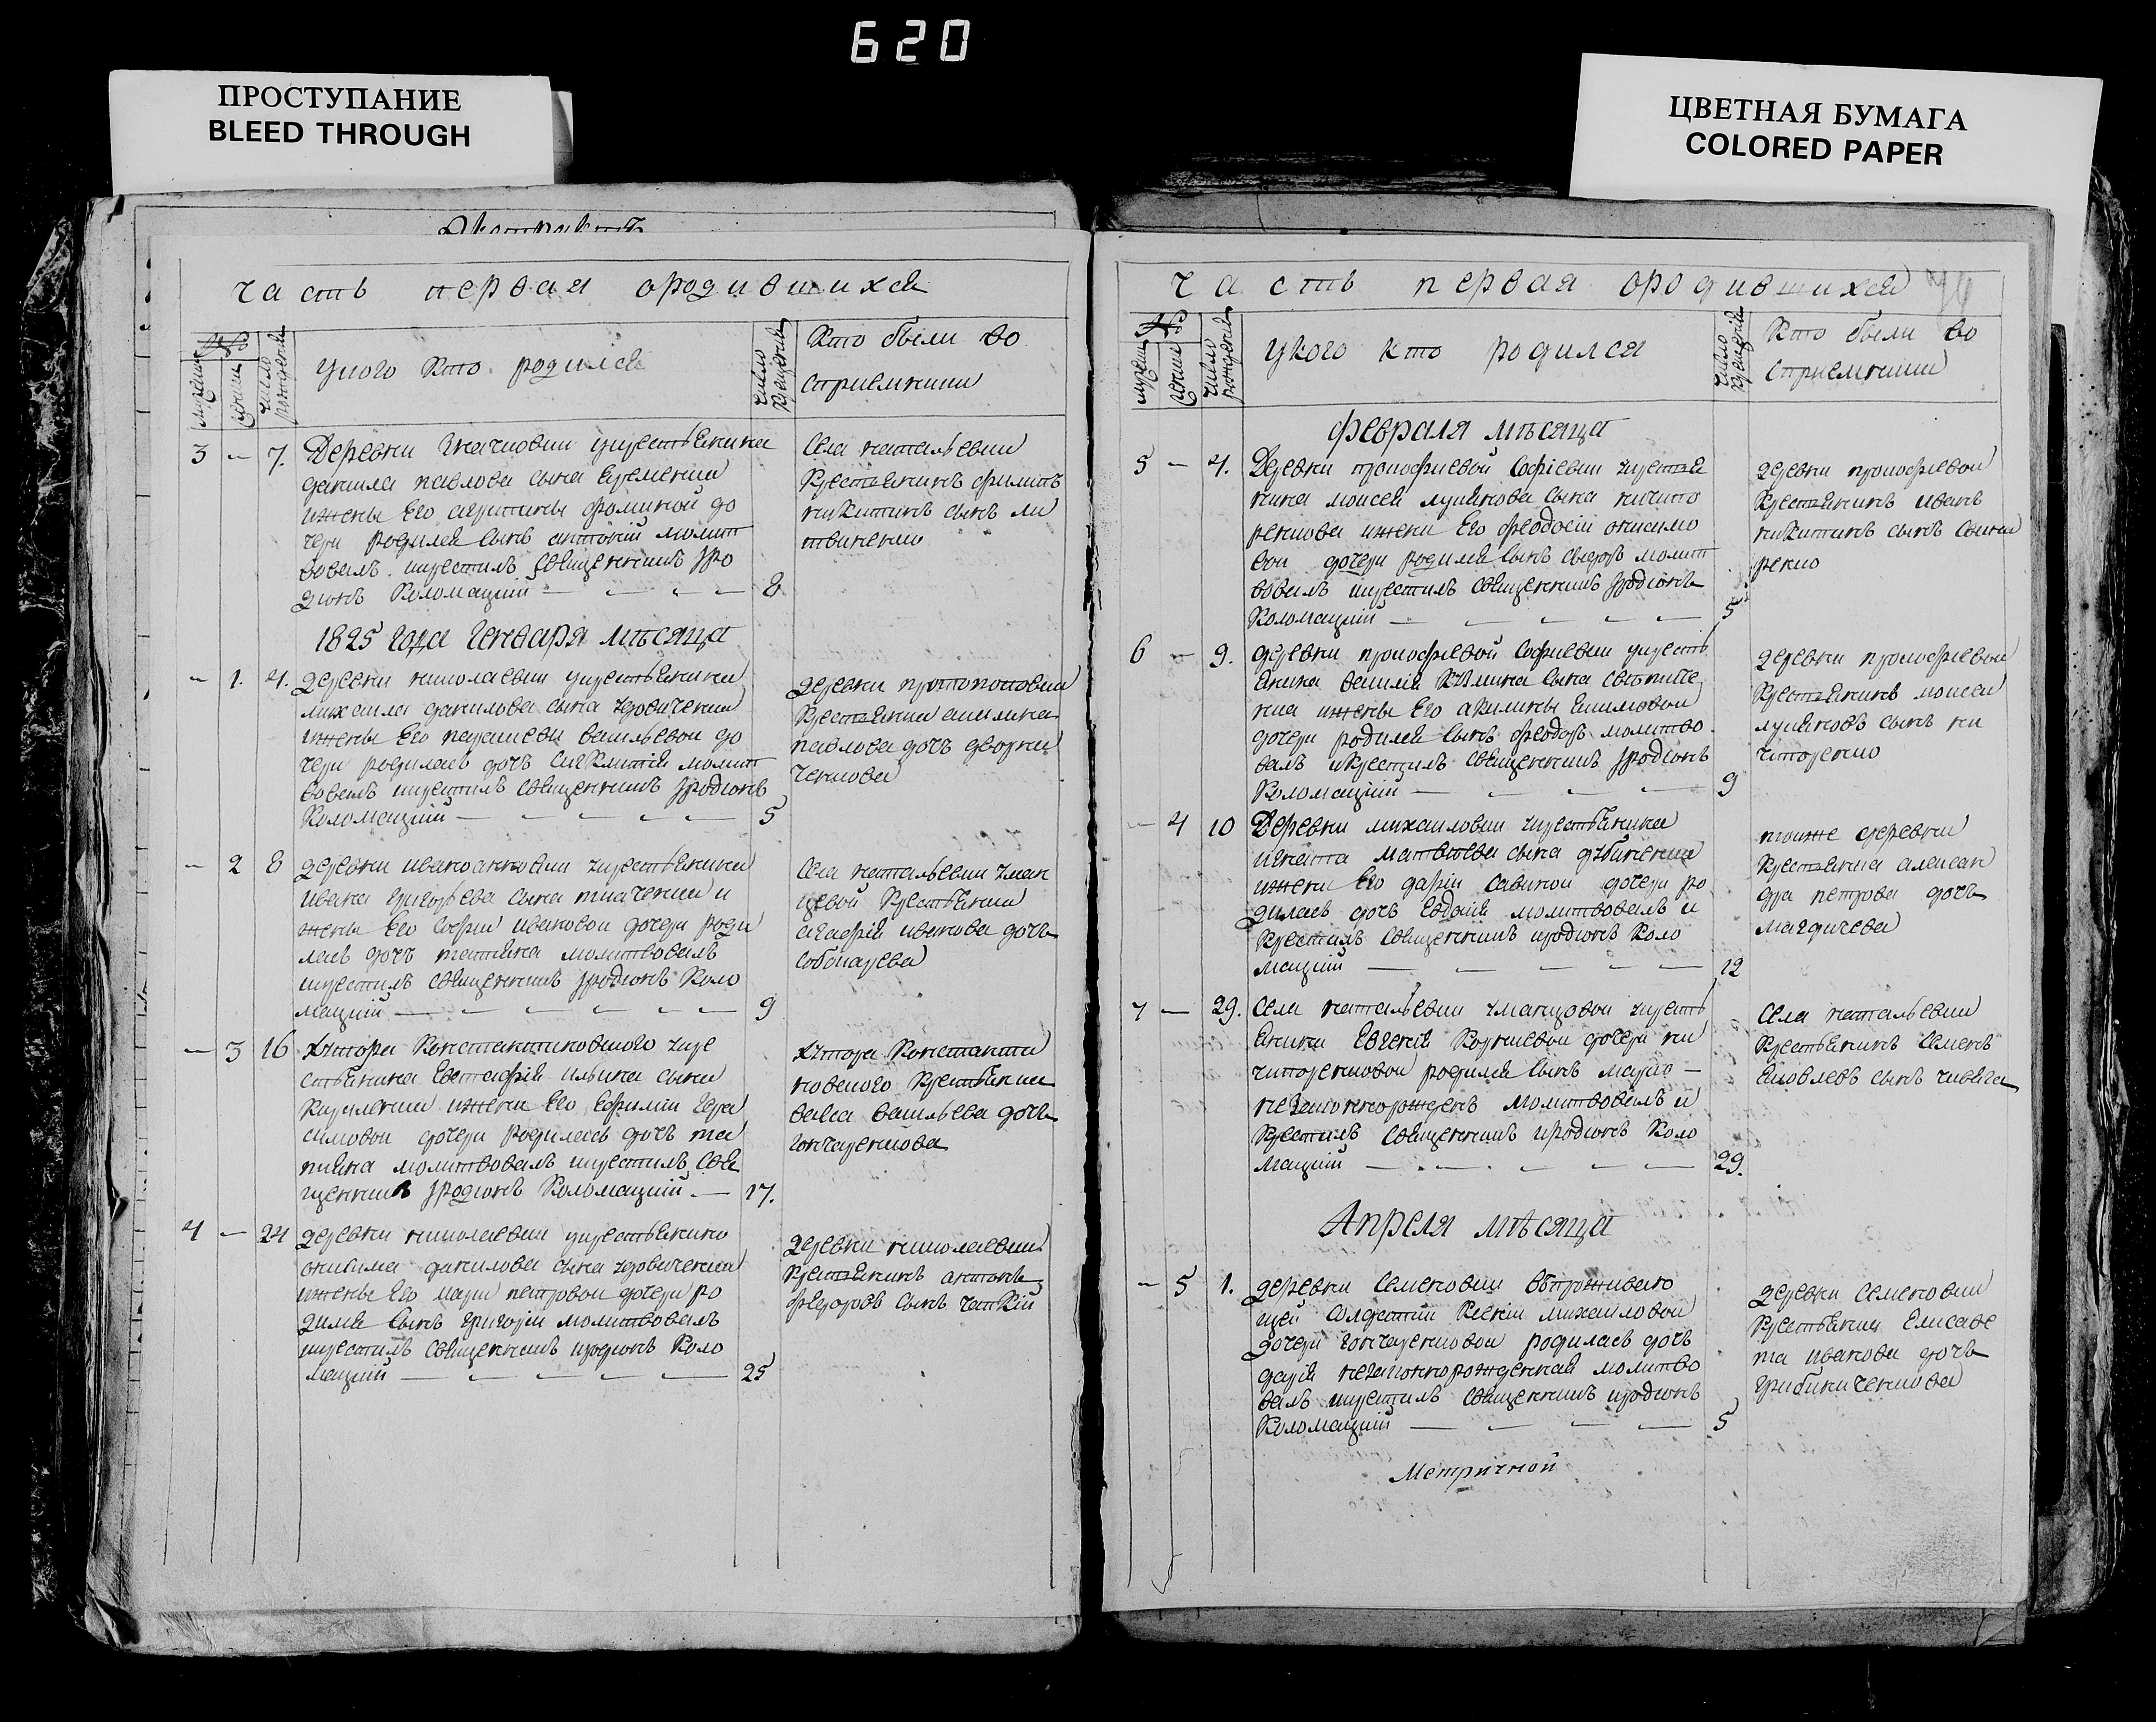 620
ПРОСТУПАНИЕ
BLEED THROUGH
ЦВЕТНАЯ БУМАГА
COLORED PAPER
часть первая ородившихся
№
мужеска
женска
число рожденія
укого кто родился
число крещенія
Кто были во
сприемники
3 — 7. Деревни укрестьянина
данила павлова сына Еременка
ижены Его фоминой до
чери родился сынъ антоній молит
вовалъ икрестилъ священникъ Іро
діонъ Коломацкій — — — — 8
Села натальевки
Крестьянинъ филипъ
никитинъ сынъ ли
твиненко
1825 Года Генваря мѣсяца
— 1. 4. деревни николаевки укрестьянина
михаила данилова сына вдовиченка
ижены Его параскеви васильевой до
чери родилась дочь молит
вовалъ икрестилъ священникъ Іродіонъ
Коломацкій — — — — — 5
деревни протопоповки
Крестьянка акилина
павлова дочь
— 2 8 деревни иваноанновки укрестьянина
ивана григорьева сына ткаченка и
жены Его Софии ивановой дочери роди
лась дочь татіяна молитвовалъ
икрестилъ священникъ Іродіонъ Коло
мацкій — — — — — — 9
Села натальевки
Крестьянка
агафія иванова дочь
— 3 16 хутора Константиновского укре
стьянина Евстафія ильина сына
Кириленка ижены Его Ефиміи Гера
симовой дочери родилась дочь та
тіяна молитвовалъ икрестилъ свя
щенникъ Іродіонъ Коломацкій — 17.
хутора Константи
новского Крестьянка
васса васильева дочь
гончаренкова
4 — 24 деревни николаевки укрестьянина
онисима данилова сына вдовиченка
ижены Его марии петровой дочери ро
дился сынъ григорій молитвовалъ
икрестилъ священникъ иродіонъ Коло
мацкій — — — — — 25
деревни николаевки
Крестьянинъ антонъ
федоровъ сынъ
часть первая ородившихся
№
мужеска
женска
число рожденія
укого кто родился
число крещенія
Кто были во
сприемники
февраля мѣсяца
5 — 4. Деревни прокофиевой Софіевки укрестья
нина моисея лукянова сына ничипо
ренкова ижени Его феодосіи онисимо
вой дочери родился сынъ молит
вовалъ икрестилъ священникъ Іродіонъ
Коломацкій — — — — — 5
деревни прокофиевой
Крестьянинъ иванъ
никитинъ сынъ
ренко
6 — 9. деревни прокофиевой Софиевки укресть
янина василія сына
ижены Его акилины
дочери родился сынъ феодоръ молитво
валъ икрестилъ священникъ Іродіонъ
Коломацкій — — — — 9
деревни прокофиевой
Крестьянинъ моисей
лукяновъ сынъ ни
чипоренко
— 4 10 Деревни михаиловки укрестьянина
игната матвѣева сына
ижени Его даріи савиной дочери ро
дилась дочь Евдокія молитвовалъ и
Крестилъ священникъ иродіонъ Коло
мацкій — — — — — 12
тоиже деревни
Крестьянка алексан
дра петрова дочь
7 — 29. Села натальевки укресть
янки Евгенія Корниевой дочери ни
чипоренковой родился сынъ марко —
незаконнорожденъ молитвовалъ и
Крестилъ священникъ иродіонъ Коло
мацкій — — — — — 29.
Села натальевки
Крестьянинъ Семенъ
яковлевъ сынъ
Апреля мѣсяца
— 5 1. деревни Семеновки
щей Солдатки Ксеніи михаиловой
дочери гончаренковой родилась дочь
дарія незаконнорожденная молитво
валъ икрестилъ священникъ иродіонъ
Коломацкій — — — — 5
деревни Семеновки
Крестьянки Елисаве
та иванова дочь
грибиниченкова
Метричной